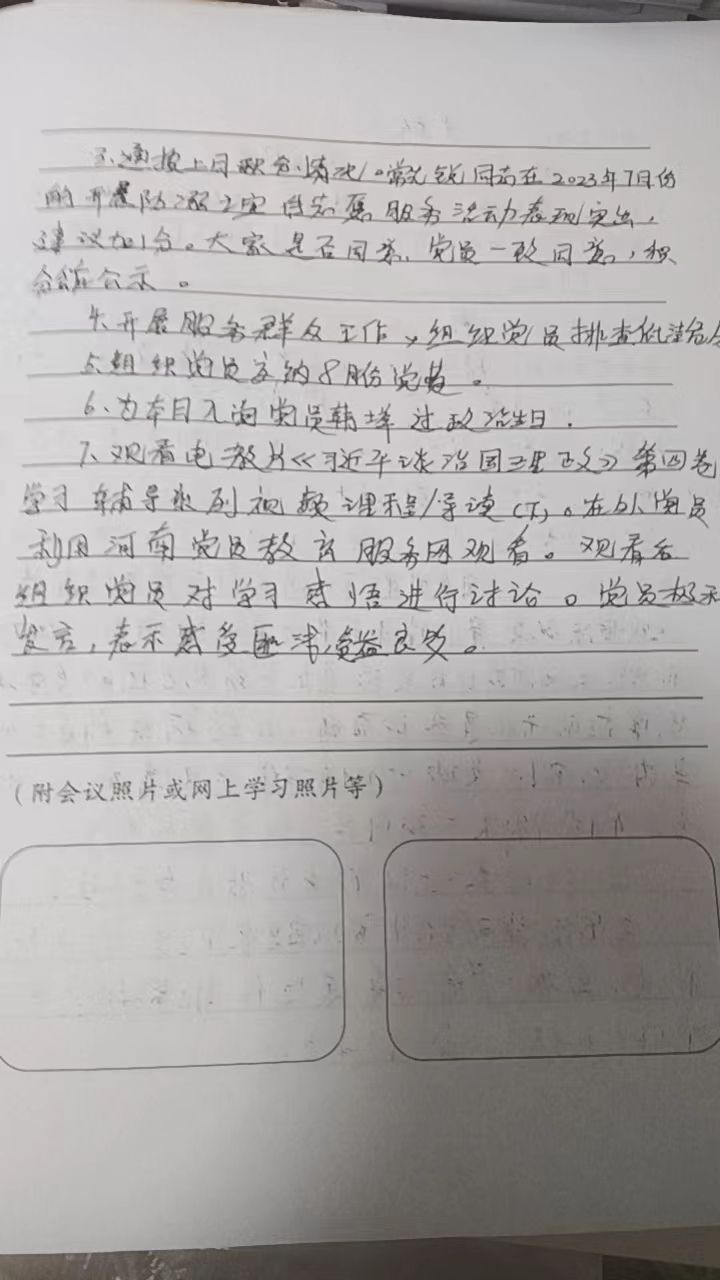 3、通报上月积分情况。常光锐同志在2023年7月份
的开展防溺亡宣传志愿服务活动表现突出，
建议加1分。大家是否同意、党员一致同意，积
分后公示。
4、开展服务群众工作、组织党员排查低洼
5、组织党员交纳8月份党费。
6、为本月入党党员韩 过政治生日.
7、观看电教片《习近平谈治国理政》第四卷
学习辅导系列视频课程/导读(下)。在外党员
利用河南党员教育服务网观看。观看后
组织党员对学习感悟进行讨论。党员极
发言，表示感受匪浅,受益良多。
(附会议照片或网上学习照片等)